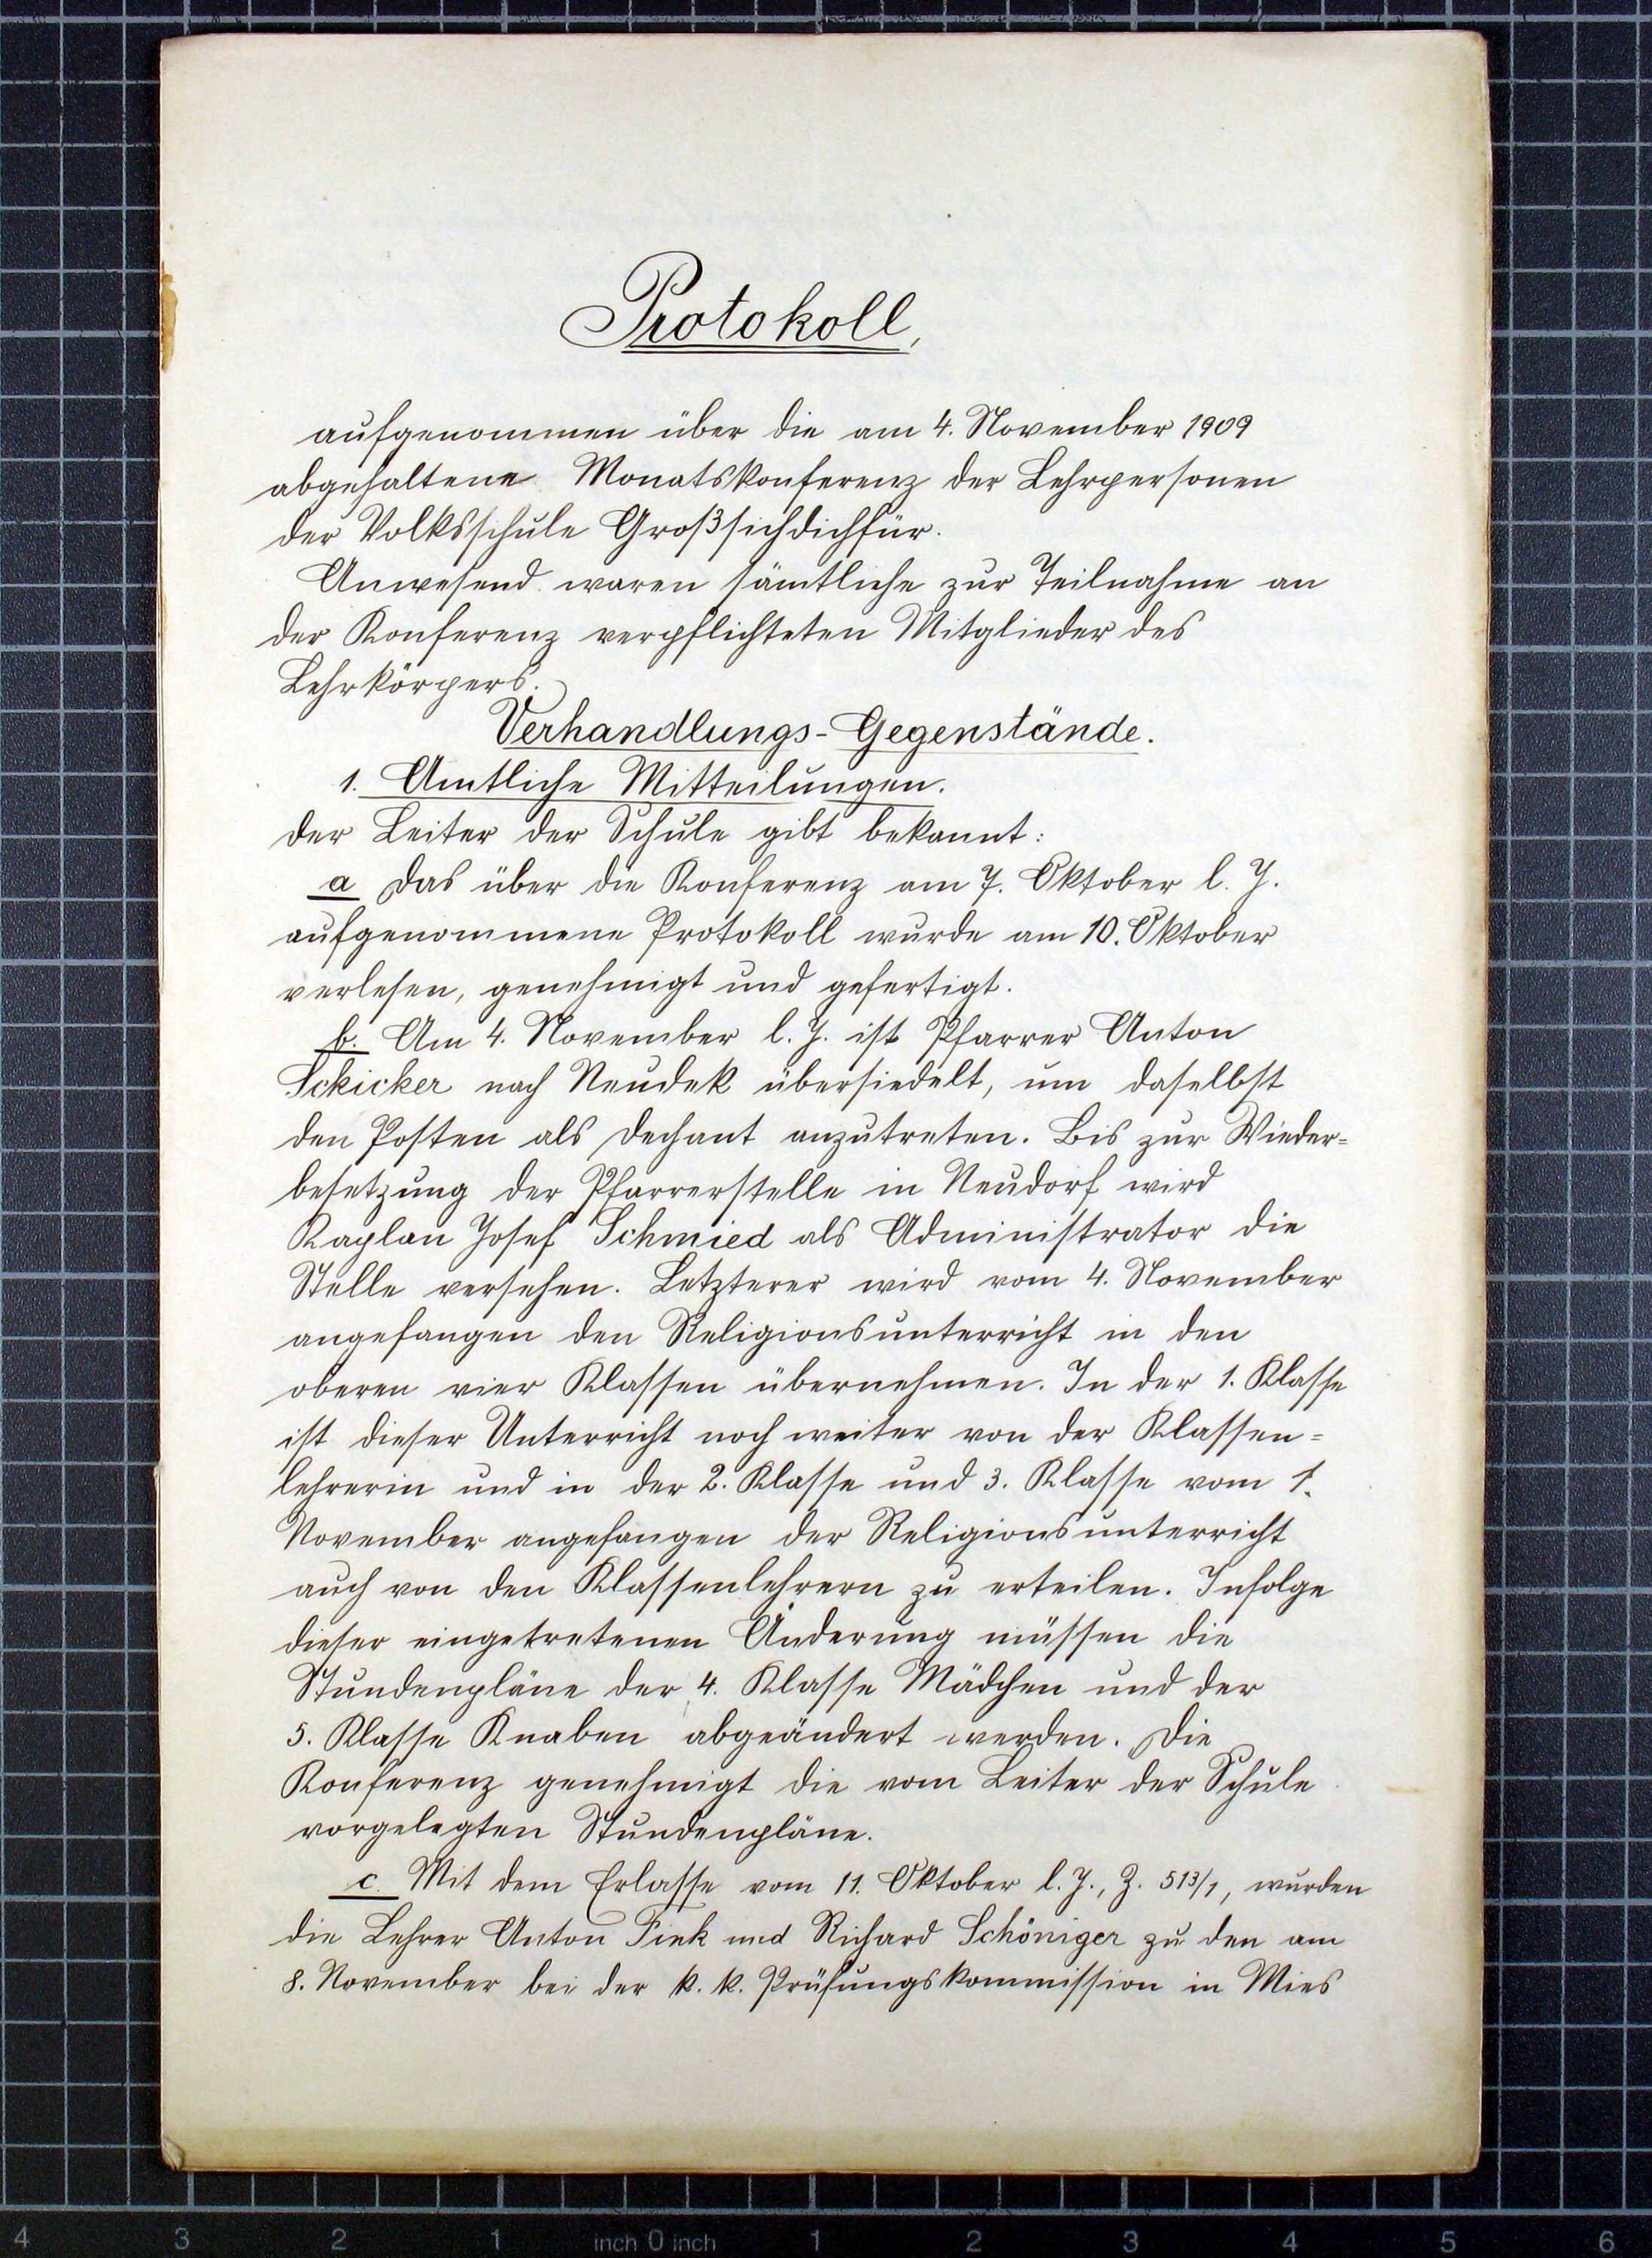 Protokoll,
aufgenommen über die am 4. November 1909
abgehaltene Monatskonferenz der Lehrpersonen
der Volksschule Großsichdichfür.
Anwesend waren sämtliche zur Teilnahme an
der Konferenz verpflichteten Mitglieder des
Lehrkörpers.
Verhandlungs-Gegenstände.
1. Amtliche Mitteilungen.
Der Leiter der Schule gibt bekannt:
a Das über die Konferenz am 7. Oktober l. J.
aufgenommene Protokoll wurde am 10. Oktober
verlesen, genehmigt und gefertigt.
b. Am 4. November l. J. ist Pfarrer Anton
Schicker nach Neudek übersiedelt, um daselbst
den Posten als Dechant anzutreten. Bis zur Wieder=
besetzung der Pfarrerstelle in Neudorf wird
Kaplan Josef Schmied als Administrator die
Stelle versehen. Letzterer wird vom 4. November
angefangen den Religionsunterricht in den
oberen vier Klassen übernehmen. In der 1. Klasse
ist dieser Unterricht noch weiter von der Klassen=
lehrerin und in der 2. Klasse und 3. Klasse vom 1.
November angefangen der Religionsunterricht
auch von den Klassenlehrern zu erteilen. Infolge
dieser eingetretenen Änderung müssen die
Stundenpläne der 4. Klasse Mädchen und der
5. Klasse Knaben abgeändert werden. Die
Konferenz genehmigt die vom Leiter der Schule
vorgelegten Stundenpläne.
c. Mit dem Erlasse vom 11. Oktober l. J., Z. 513/1, wurden
die Lehrer Anton Fink und Richard Schöniger zu den am
8. November bei der k. k. Prüfungskommission in Mies
4 3 2 1 inch 0 inch 1 2 3 4 5 6